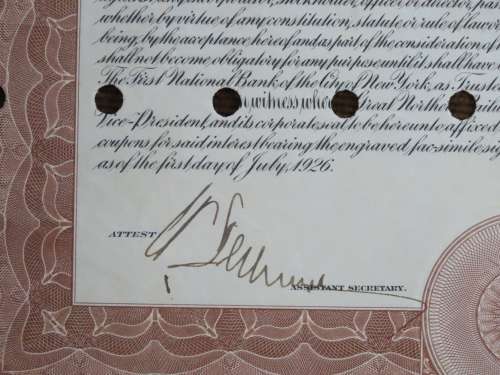 whether by virtue of any constitution, statute or rule of law
being, by the acceptance hereof and as part of the consideration of
shall not become obligatory for any purpose until it shall have
The First National Bank of the City of New York, as Trust
witness whe reat Northern
Vice-President, and its corporate seal to be hereunto affixed
coupons for said interest bearing the engraved fac-simile sig
as of the first day of July, 1926.
ATTEST
ASSISTANT SECRETARY.